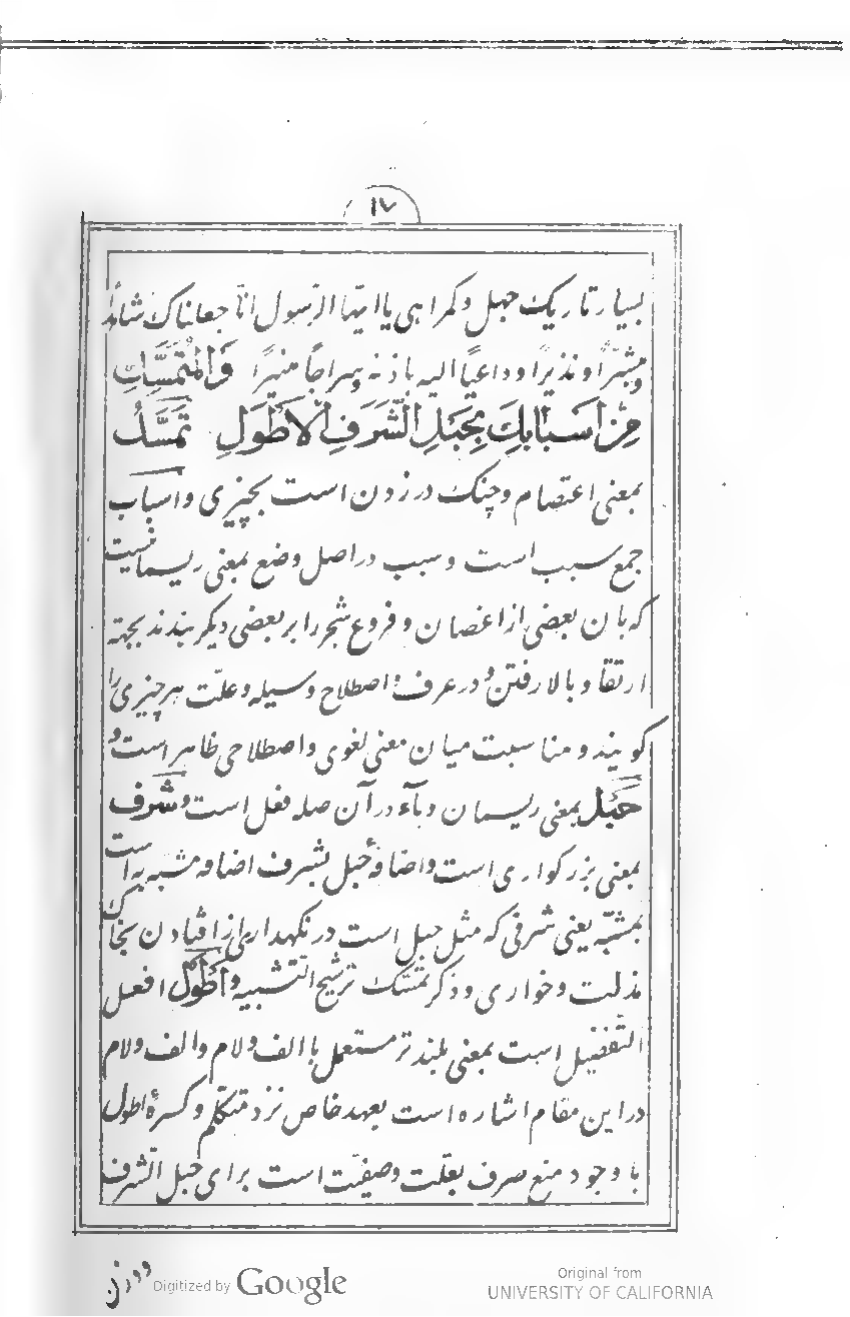 ١٧
بسیار تاریک جهل و کمراهی یا ایّها الرّسول انّا جعلناک شاهداً
و مبشّراً و نذیراً و داعیاً الیه باذنه و سراجاً منیراً وَالْمُتَمَسِّكِ
مِنْ اَسْبَابِكَ بِحَبْلِ الشَّرَفِ الْاَطْوَلِ تَمَسُّك
بمعنی اعتصام و چنک در زدن است بچیزی و اسباب
جمع سبب است و سبب در اصل وضع بمعنی ریسمانیست
که بان بعضی از اغصان و فروع شجر را بر بعضی دیکر بندند بجهته
ارتقا و بالا رفتن و در عرف و اصطلاح وسیله و علّت هر چیزی را
کویند و مناسبت میان معنی لغوی و اصطلاحی ظاهر است و
حَبْل بمعنی ریسمان و بآء در آن صله فعل است و شرف
بمعنی بزرکواری است و اضافهٔ حبل بشرف اضافه مشبّه به است
بمشبّه یعنی شرفی که مثل حبل است در نکهداری از افتادن بخاک
مذلت و خواری و ذکر تمسّک ترشیح التّشبیه و اَطْوَل افعل
التّفضیل است بمعنی بلندتر مستعمل با الف و لام و الف و لام
در این مقام اشاره است بعهد خاص نزد متکلّم و کسرهٔ اطول
با وجود منع صرف بعلّت وصفیّت است برای حبل الشّرف
Digitized by Google
Original from
UNIVERSITY OF CALIFORNIA